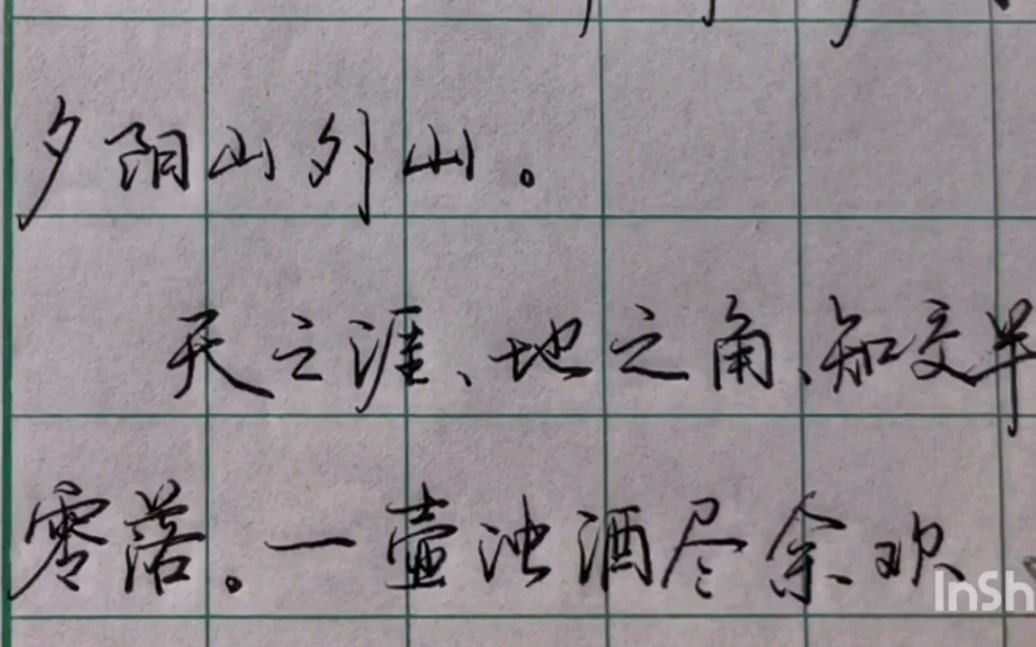 夕阳山外山。
天之涯、地之角、知交半
零落。一壶浊酒尽余欢、
InSh